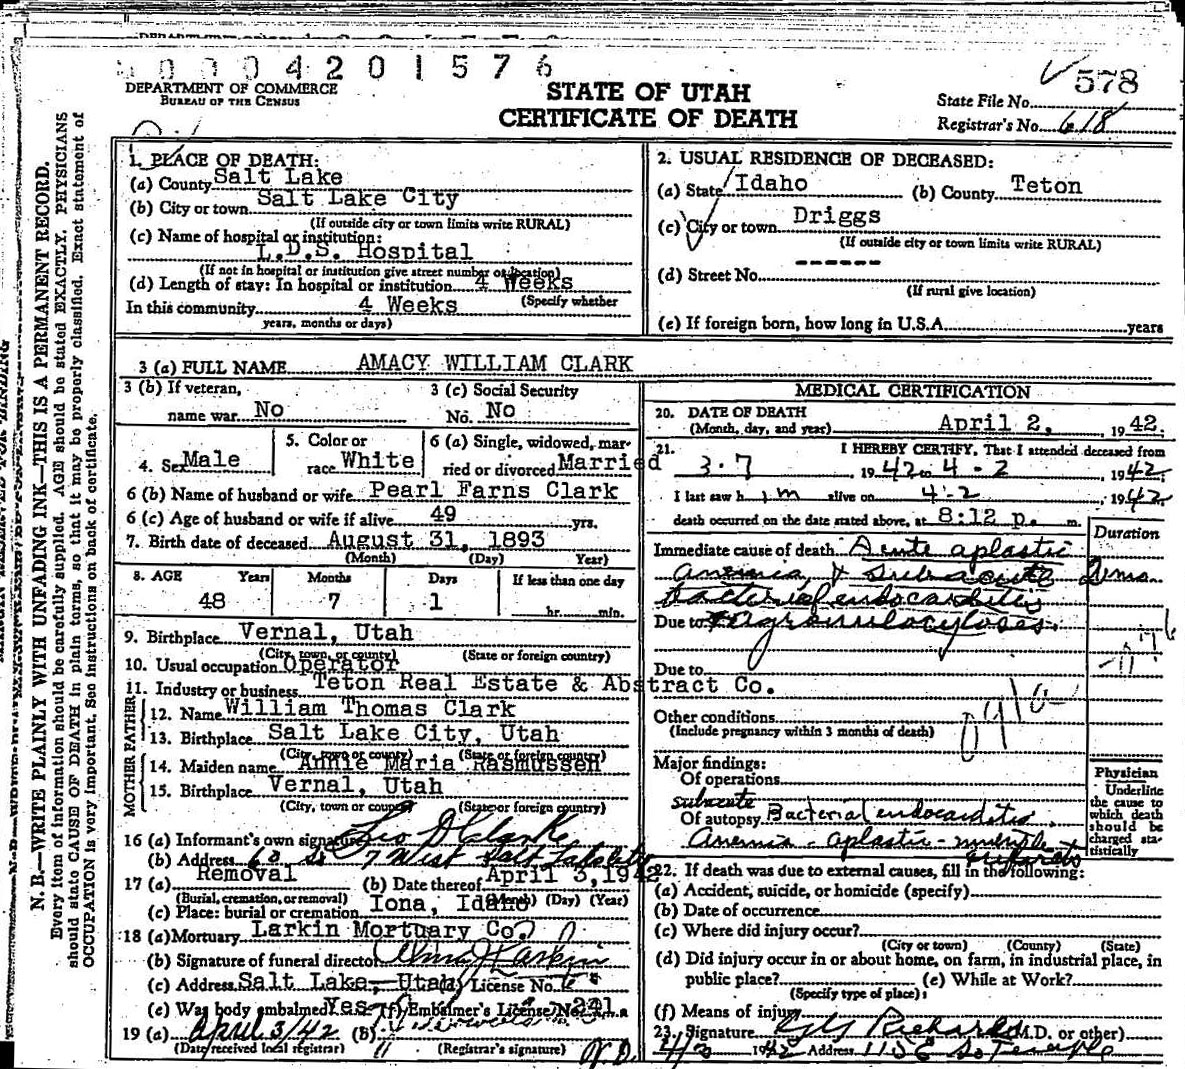 0 0 0 4 2 0 1 5 7 6
578
DEPARTMENT OF COMMERCE
BUREAU OF THE CENSUS
STATE OF UTAH
CERTIFICATE OF DEATH
State File No.
Registrar's No. 618
N. B.—WRITE PLAINLY WITH UNFADING INK—THIS IS A PERMANENT RECORD.
Every item of information should be carefully supplied. AGE should be stated EXACTLY. PHYSICIANS
should state CAUSE OF DEATH in plain terms, so that it may be properly classified. Exact statement of
OCCUPATION is very important. See instructions on back of certificate.
1. PLACE OF DEATH:
(a) County Salt Lake
(b) City or town Salt Lake City
(If outside city or town limits write RURAL)
(c) Name of hospital or institution:
L.D.S. Hospital
(If not in hospital or institution give street number or location)
(d) Length of stay: In hospital or institution 4 Weeks
(Specify whether
In this community 4 Weeks
years, months or days)
2. USUAL RESIDENCE OF DECEASED:
(a) State Idaho (b) County Teton
(c) City or town Driggs
(If outside city or town limits write RURAL)
(d) Street No. ------
(If rural give location)
(e) If foreign born, how long in U.S.A. years
3 (a) FULL NAME AMACY WILLIAM CLARK
3 (b) If veteran, name war No
3 (c) Social Security No. No
4. Sex Male
5. Color or race White
6 (a) Single, widowed, married or divorced Married
6 (b) Name of husband or wife Pearl Farns Clark
6 (c) Age of husband or wife if alive 49 yrs.
7. Birth date of deceased August 31, 1893
(Month) (Day) Year)
8. AGE Years Months Days If less than one day
48 7 1 hr. min.
9. Birthplace Vernal, Utah
(City, town, or county) (State or foreign country)
10. Usual occupation Operator
11. Industry or business Teton Real Estate & Abstract Co.
FATHER
12. Name William Thomas Clark
13. Birthplace Salt Lake City, Utah
(City, town or county) (State or foreign country)
MOTHER
14. Maiden name Annie Maria Rasmussen
15. Birthplace Vernal, Utah
(City, town or county) (State or foreign country)
16 (a) Informant's own signature Leo D Clark
(b) Address 68 So 7 West Salt Lake City
17 (a) Removal (b) Date thereof April 3, 1942
(Burial, cremation, or removal) (Month) (Day) (Year)
(c) Place: burial or cremation Iona, Idaho
18 (a) Mortuary Larkin Mortuary Co.
(b) Signature of funeral director Larkin
(c) Address Salt Lake, Utah (d) License No.
(e) Was body embalmed Yes (f) Embalmer's License No. 241
19 (a) April 3/42 (b)
(Date received local registrar) (Registrar's signature)
MEDICAL CERTIFICATION
20. DATE OF DEATH
(Month, day, and year) April 2, 1942.
21. I HEREBY CERTIFY, That I attended deceased from
3-7 1942 to 4-2 1942.
I last saw him alive on 4-2, 1942
death occurred on the date stated above, at 8:12 p. m.
Duration
Immediate cause of death Acute aplastic
anemia, & subacute 2 mo.
bacterial endocarditis
Due to agranulocytosis.
Due to
Other conditions
(Include pregnancy within 3 months of death)
Major findings:
Of operations
subacute
Of autopsy Bacterial endocarditis.
Anemia - aplastic - multiple
infarcts
Physician
Underline
the cause to
which death
should be
charged sta-
tistically
22. If death was due to external causes, fill in the following:
(a) Accident, suicide, or homicide (specify)
(b) Date of occurrence
(c) Where did injury occur?
(City or town) (County) (State)
(d) Did injury occur in or about home, on farm, in industrial place, in
public place? (e) While at Work?
(Specify type of place)
(f) Means of injury
23. Signature Richards M.D. or other)
1942 Address 115 E So Temple